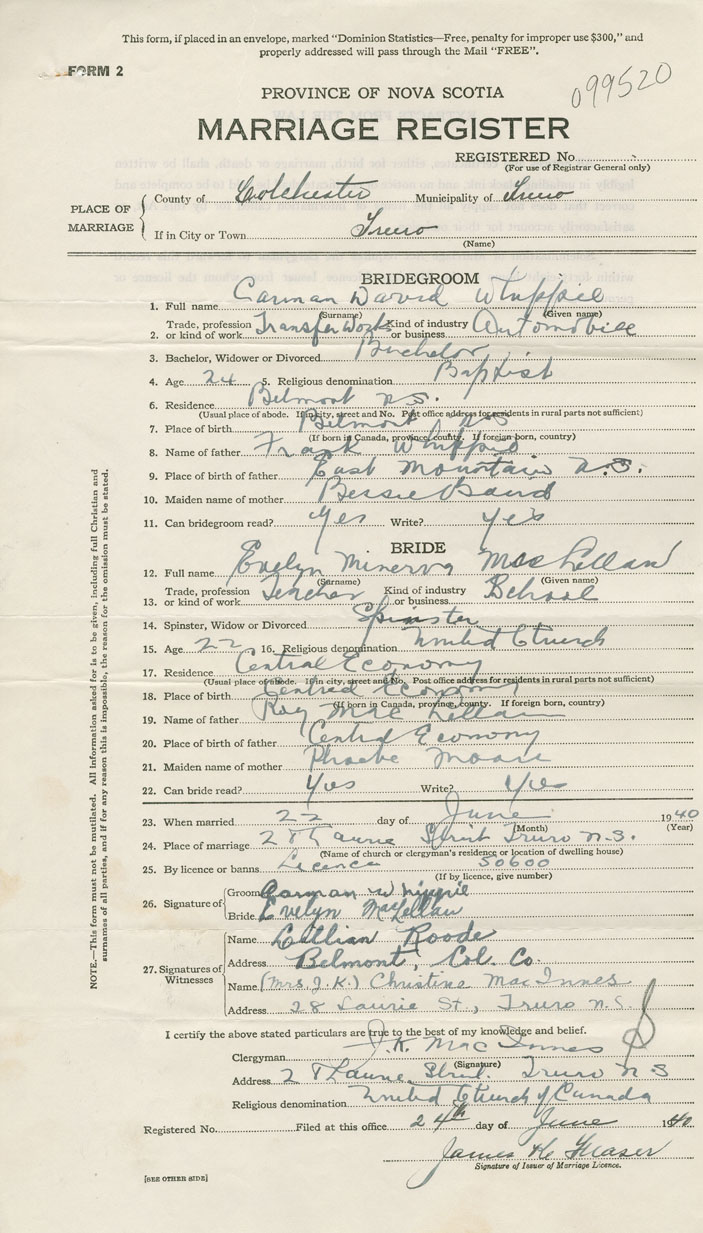 This form, if placed in an envelope, marked "Dominion Statistics—Free, penalty for improper use $300," and
properly addressed will pass through the Mail "FREE".
FORM 2
099520
PROVINCE OF NOVA SCOTIA
MARRIAGE REGISTER
REGISTERED No.
(For use of Registrar General only)
PLACE OF MARRIAGE
County of Colchester Municipality of Truro
If in City or Town Truro
(Name)
BRIDEGROOM
1. Full name Carman David Whippie
(Surname) (Given name)
2. Trade, profession or kind of work Transfer Work Kind of industry or business Automobile
3. Bachelor, Widower or Divorced Bachelor
4. Age 24 5. Religious denomination Baptist
6. Residence Belmont N.S.
(Usual place of abode. If in city, street and No. Post office address for residents in rural parts not sufficient)
7. Place of birth Belmont N.S.
(If born in Canada, province, county. If foreign born, country)
8. Name of father Frank Whippie
9. Place of birth of father East Mountain N.S.
10. Maiden name of mother Bessie
11. Can bridegroom read? Yes Write? Yes
BRIDE
12. Full name Evelyn Minerva MacLellan
(Surname) (Given name)
13. Trade, profession or kind of work Teacher Kind of industry or business School
14. Spinster, Widow or Divorced Spinster
15. Age 22 16. Religious denomination United Church
17. Residence Central Economy
(Usual place of abode. If in city, street and No. Post office address for residents in rural parts not sufficient)
18. Place of birth Central Economy
(If born in Canada, province, county. If foreign born, country)
19. Name of father Roy MacLellan
20. Place of birth of father Central Economy
21. Maiden name of mother Phoebe Moore
22. Can bride read? Yes Write? Yes
23. When married 22 day of June 1940
(Month) (Year)
24. Place of marriage 28 Laurie Street Truro N.S.
(Name of church or clergyman's residence or location of dwelling house)
25. By licence or banns Licence 50600
(If by licence, give number)
26. Signature of
Groom Carman Whippie
Bride Evelyn MacLellan
27. Signatures of Witnesses
Name Lillian Roode
Address Belmont, Col. Co.
Name (Mrs. J.K.) Christine MacInnes
Address 28 Laurie St., Truro N.S.
I certify the above stated particulars are true to the best of my knowledge and belief.
Clergyman J.K. MacInnes
(Signature)
Address 28 Laurie Street. Truro N.S
Religious denomination United Church of Canada
Registered No. Filed at this office 24th day of June 1940
James K. Fraser
Signature of Issuer of Marriage Licence.
[SEE OTHER SIDE]
NOTE.—This form must not be mutilated. All information asked for is to be given, including full Christian and
surnames of all parties, and if for any reason this is impossible, the reason for the omission must be stated.